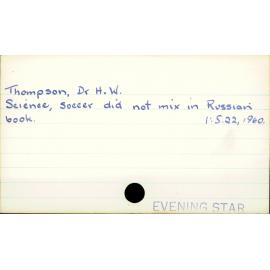 Thompson, Dr H.W.
Science, soccer did not mix in Russian
book. 1:5.22, 1960.
EVENING STAR